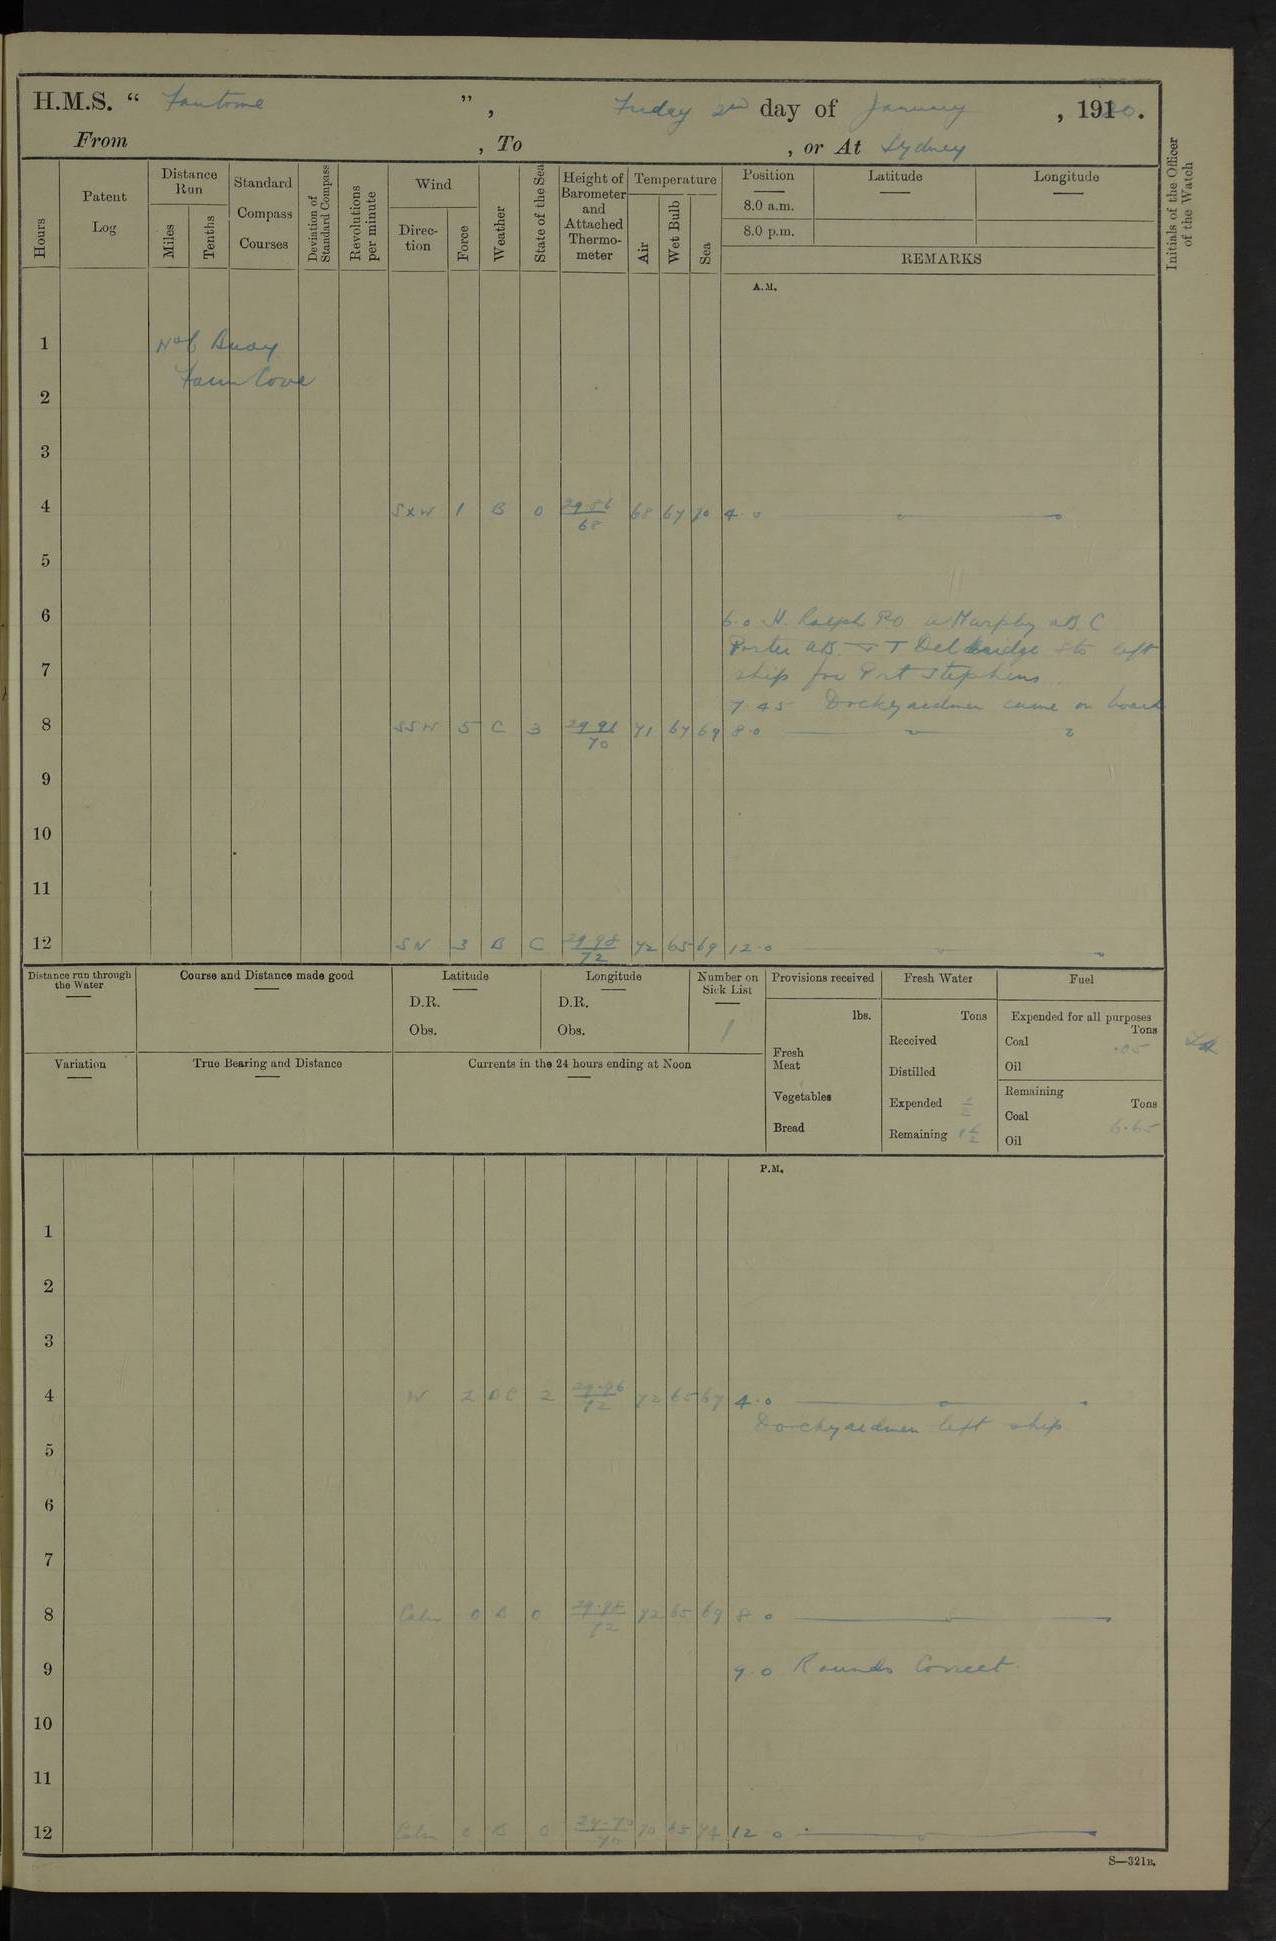 H.M.S. “ Fantome ”, Friday 2nd day of January, 1920.
From , To , or At Sydney
Hours
Patent Log
Distance Run
Miles
Tenths
Standard Compass Courses
Deviation of Standard Compass
Revolutions per minute
Wind
Direction
Force
Weather
State of the Sea
Height of Barometer and Attached Thermometer
Temperature
Air
Wet Bulb
Sea
Position Latitude Longitude
8.0 a.m.
8.0 p.m.
REMARKS
Initials of the Officer of the Watch
A.M.
1 No 6 Buoy
Farm Cove
2
3
4 SXW 1 B 0 29.86/68 68 67 70 4.0
5
6 6.0 H. Ralph PO W Murphy AB. C
Porter AB. & T Delbridge Sto left
7 ship for Port Stephens
7.45 Dockyardmen came on board
8 SSW 5 C 3 29.91/70 71 67 69 8.0
9
10
11
12 SW 3 B C 29.98/72 72 65 69 12.0
Distance run through the Water
Course and Distance made good
Latitude
D.R.
Obs.
Longitude
D.R.
Obs.
Number on Sick List
1
Provisions received
lbs.
Fresh Meat
Vegetables
Bread
Fresh Water
Tons
Received
Distilled
Expended ½
Remaining
Fuel
Expended for all purposes
Tons
Coal .05
Oil
Remaining
Tons
Coal 6.65
Oil
Variation
True Bearing and Distance
Currents in the 24 hours ending at Noon
P.M.
1
2
3
4 W 2 BC 2 29.96/72 72 65 67 4.0
Dockyardmen left ship
5
6
7
8 Calm 0 B 0 29.98/72 72 65 69 8.0
9 9.0 Rounds Correct.
10
11
12 Calm 0 B 0 70 65 12.0
S—321B.